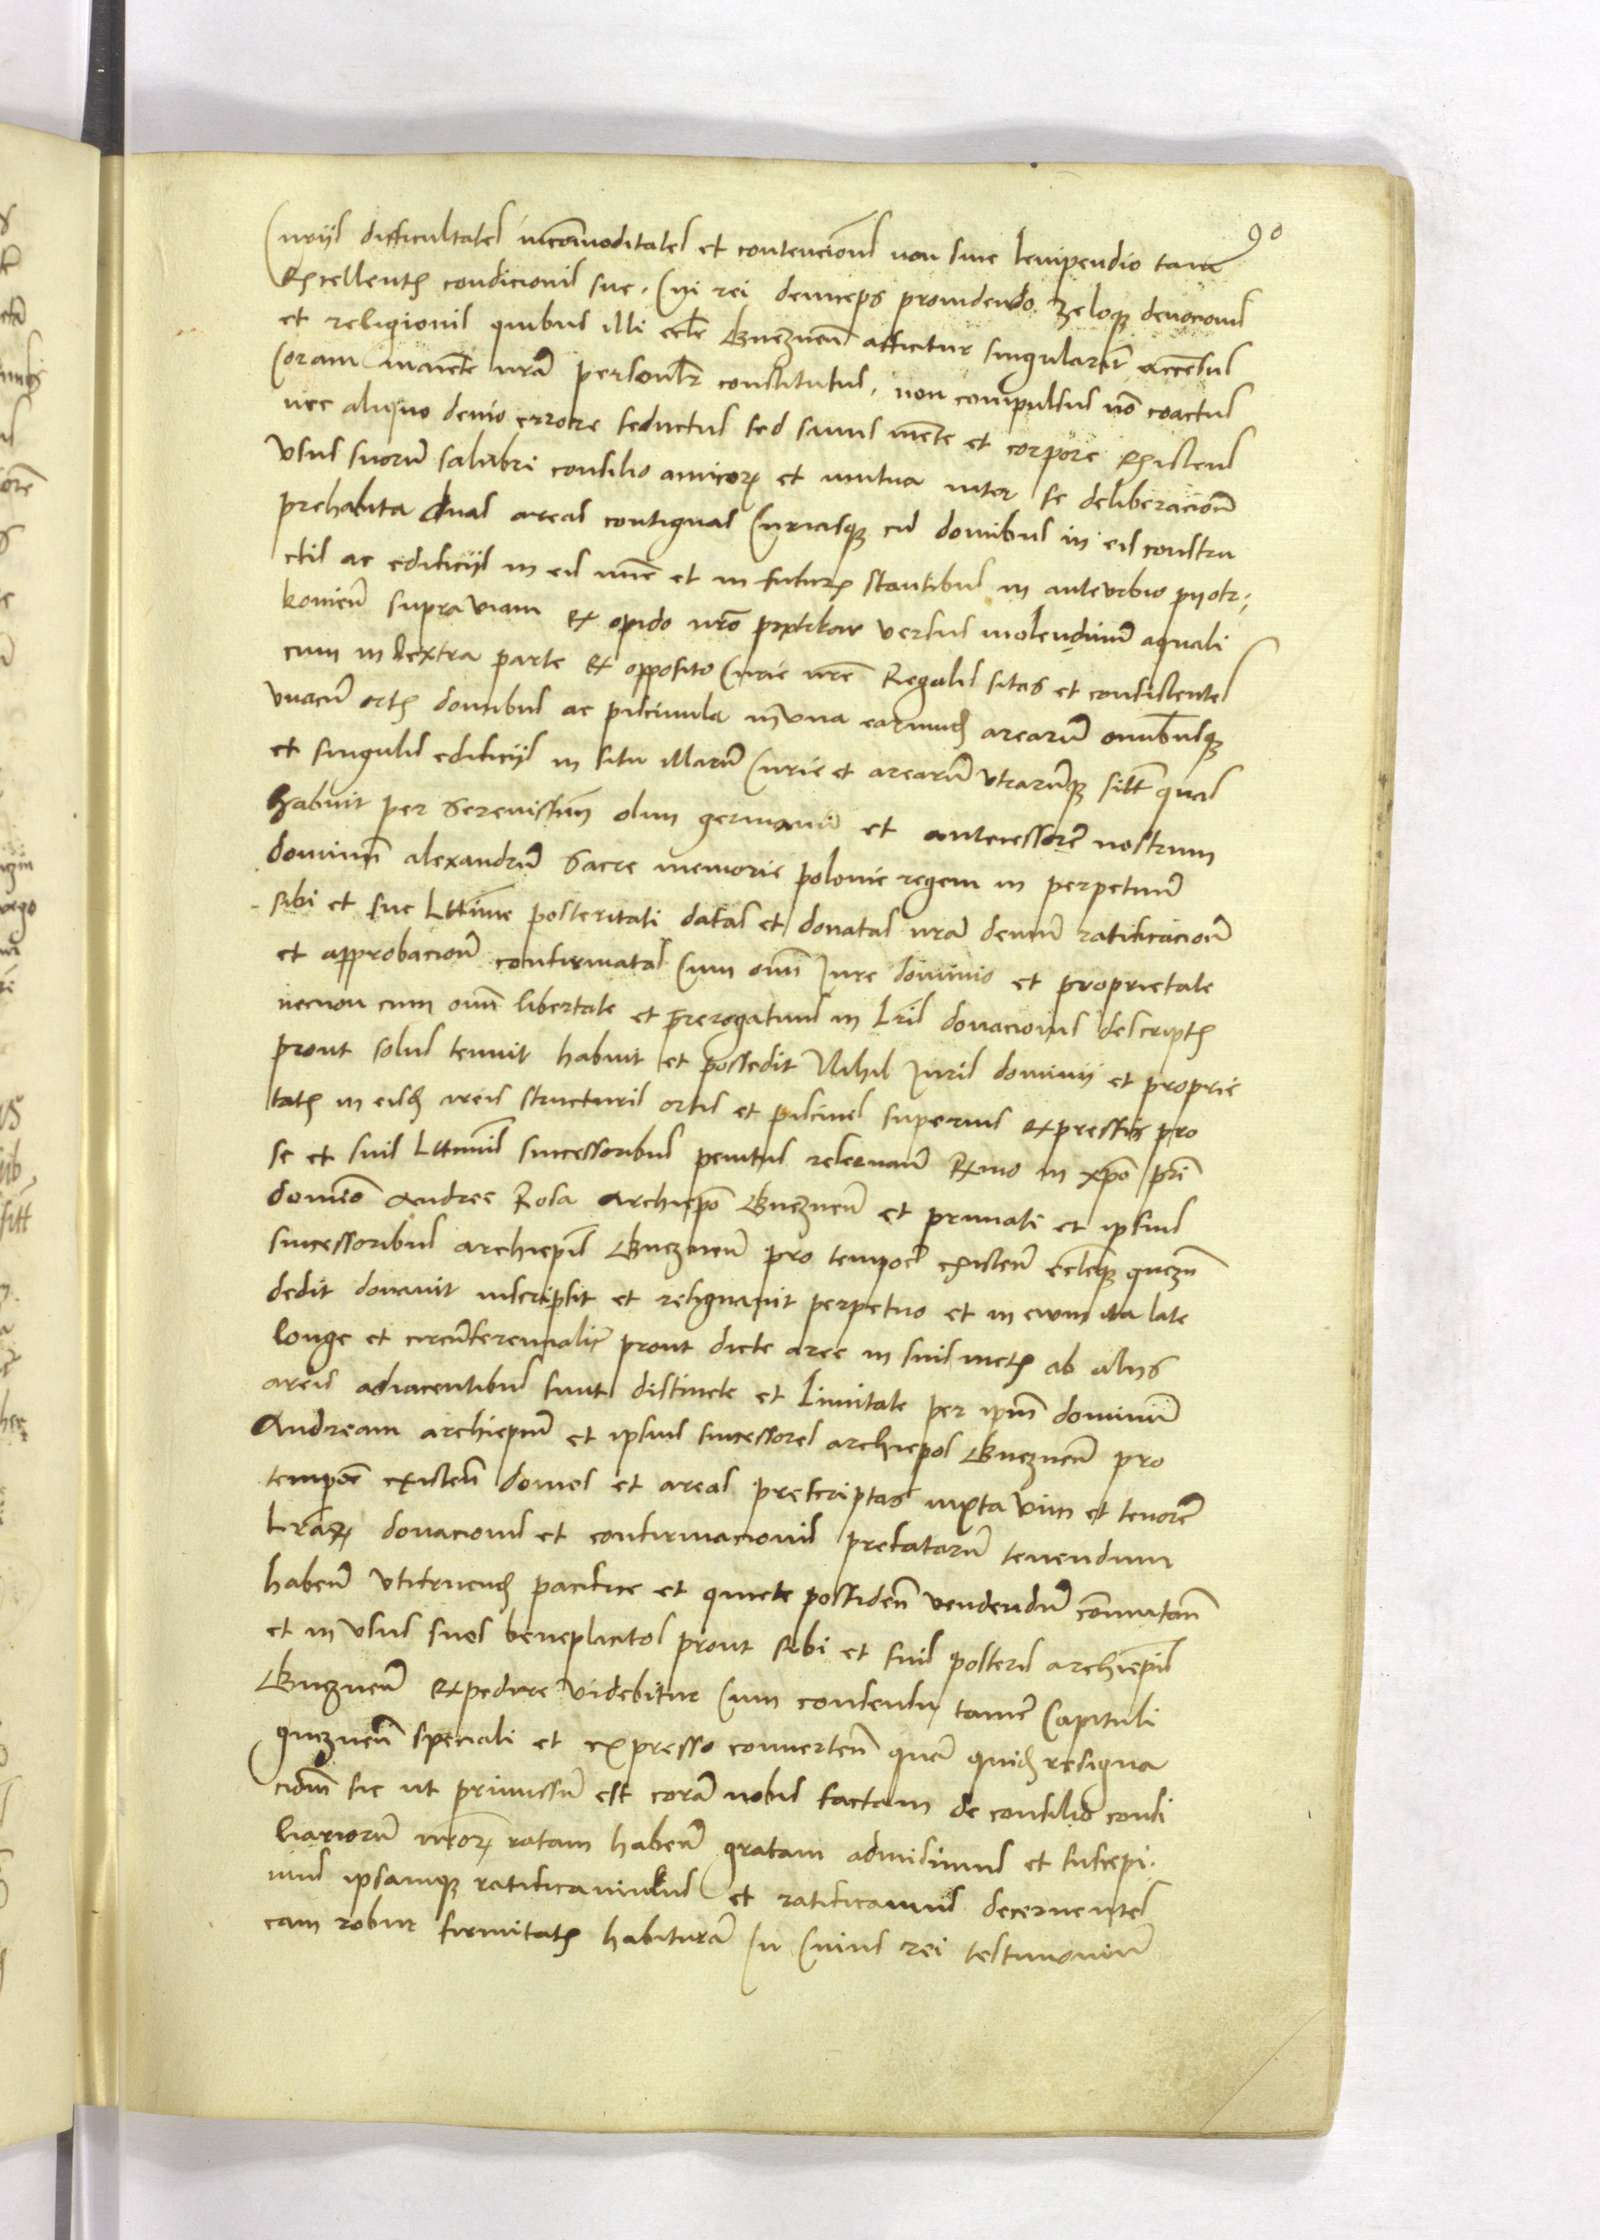 90
Curijs difficultates incomoditates et contencionis non sine levipendio tam
excellentis condicionis sue. Cui rei deinceps providendo zeloque devocionis
et religionis quibus illi eccle Gneznen afficitur singulariter accensus
Coram maieste nra personaliter constitutus, non compulsus no coactus
nec aliquo devio errore seductus sed sanus mente et corpore existens
Usus suorum salubri consilio amicorum et mutua inter se deliberacione
prehabita duas areas contiguas Curiasque cu domibus in eis constru
ctis ac edificijs in eis nunc et in futurum stantibus in anteurbio pijotr,
konien supra viam ex opido nro piotrkow versus molendinum aquati
cum in dextra parte ex opposito Curie nre Regalis sitas et consistentes
unacum ortis domibus ac piscinula in una earundem arearum omnibusque
et singulis edificijs in situ illarum Curie et arearum utrarumque sitis quas
habuit per Serenissimum olim germanum et antecessorem nostrum
dominum alexandrum Sacre memorie polonie regem in perpetuum
sibi et sue Lttime posteritati datas et donatas nram demum ratificacionem
et approbacionem confirmatas Cum omni Jure dominio et proprietate
necnon cum omni libertate et prerogativis in Lris donacionis descriptis
prout solus tenuit habuit et possedit Nihil Juris dominij et proprie
tatis in eisdem areis structuris ortis et piscinis superius expressis pro
se et suis Lttimis successoribus penitus reservando Rmo in xpo pri
domino Andree Rosa Archiepo Gneznen et primati et ipsius
successoribus archiepis Gneznen pro tempore existen eccleque gnezn
dedit donavit inscripsit et resignavit perpetuo et in evum ita late
longe et circumferencialiter prout dicte aree in suis metis ab alijs
areis adiacentibus sunt distincte et Limitate per ipsum dominum
Andream archiepum et ipsius successores archiepos Gneznen pro
tempore existen domos et areas prescriptas iuxta vim et tenorem
Lrarum donacionis et confirmacionis prefatarum tenendum
habend utifruendum pacifice et quiete possidend vendendum commutand
et in usus suos beneplacitos prout sibi et suis posteris archiepis
Gneznen expedire videbitur Cum consensu tamen Capituli
gneznen speciali et expresso convertend quam quidem resigna
cionem sic ut premissum est coram nobis factam de consilio consi
liariorum nrorum ratam habend gratam admisimus et suscepi.
mus ipsamque ratificavimus et ratificamus decernentes
eam robur firmitatis habituram In Cuius rei testimonium